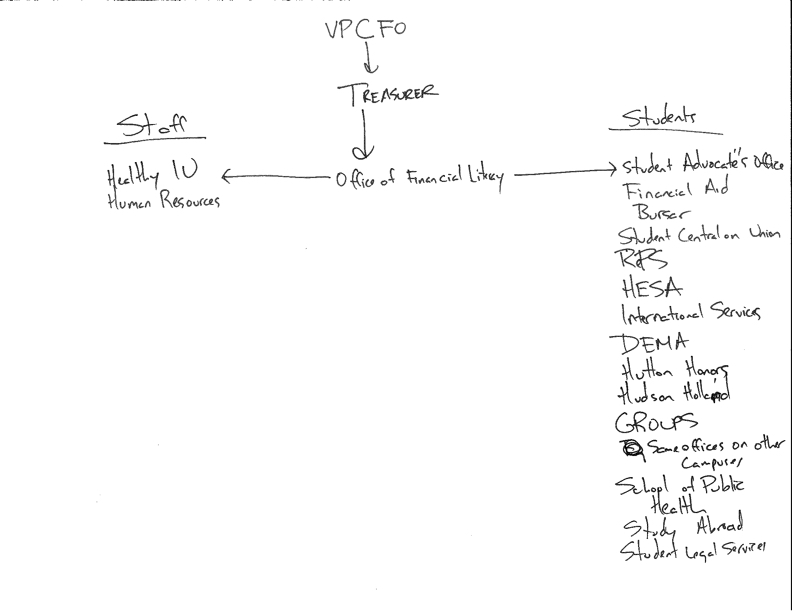 VPCFO
TREASURER
Staff
Healthy IU
Human Resources
Office of Financial Litrcy
Students
Student Advocate's Office
Financial Aid
Bursar
Student Central on Union
RPS
HESA
International Services
DEMA
Hutton Honors
Hudson Holland
GROUPS
Some offices on other
Campuses
School of Public
Health
Study Abroad
Student Legal Services